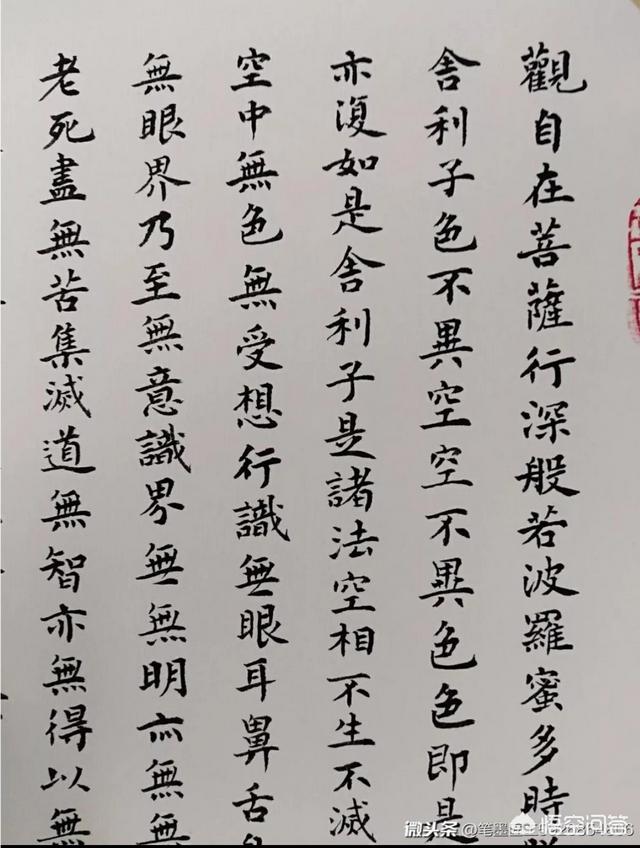 觀自在菩薩行深般若波羅蜜多時
舍利子色不異空空不異色色即是
亦復如是舍利子是諸法空相不生不滅
空中無色無受想行識無眼耳鼻舌
無眼界乃至無意識界無無明亦無無
老死盡無苦集滅道無智亦無得以無
微头条
悟空问答